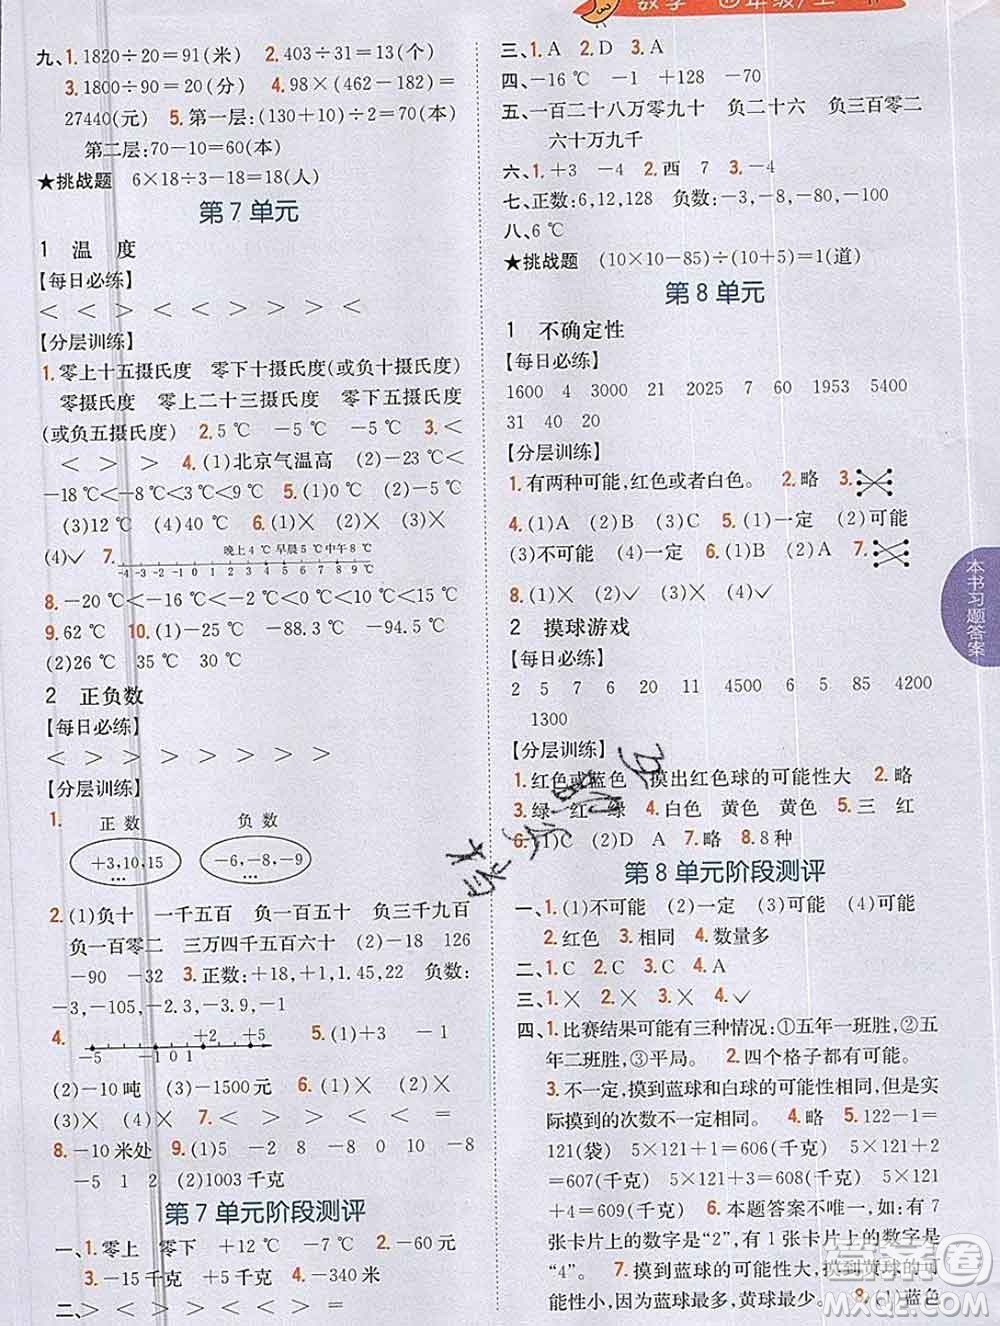 数学 四年级/上
九、1. 1820÷20=91(米) 2. 403÷31=13(个)
3. 1800÷90=20(分) 4. 98×(462-182)=
27440(元) 5. 第一层:(130+10)÷2=70(本)
第二层:70-10=60(本)
★挑战题 6×18÷3-18=18(人)
第7单元
1 温 度
【每日必练】
< < > < > < > > <
【分层训练】
1. 零上十五摄氏度 零下十摄氏度(或负十摄氏度)
零摄氏度 零上二十三摄氏度 零下五摄氏度
(或负五摄氏度) 2. 5 ℃ -5 ℃ -5 ℃ 3. <
< > > < 4. (1)北京气温高 (2)-23 ℃<
-18 ℃<-2 ℃<5 ℃<9 ℃ 5. (1)0 ℃ (2)-4 ℃
(3)12 ℃ (4)40 ℃ 6. (1)× (2)× (3)×
(4)√ 7.
晚上4 ℃ 早晨5 ℃ 中午8 ℃
-4 -3 -2 -1 0 1 2 3 4 5 6 7 8 9
8. -20 ℃<-18 ℃<-2 ℃<0 ℃<10 ℃<30 ℃
9. 62 ℃ 10. (1)-27 ℃ -88.3 ℃ -94.5 ℃
(2)0 ℃ 35 ℃ 30 ℃
2 正负数
【每日必练】
< > < > > > > > >
【分层训练】
1.
正 数 负 数
+3,10,15 … -6,-8,-9 …
2. (1)负十 一千五百 负一百一十 三千九百
负一百零二 三万四千五百六十 (2)-18 126
-90 -32 3. 正数:+18,+1,+120 负数:
-3,-105,-2.3,-3.9,-1
4. -5 -1 0 1 +2 +5 5. (1)+3 -1
(2)-10吨 (3)-1500元 6. (1)× (2)×
(3)× (4)× 7. < < > > > >
8. -10米处 9. (1)5 -2 8 -5 -2 -8
-5 1 2 (2)1003千克
第7单元阶段测评
一、1. 零上 零下 +12℃ -7℃ 2. -60元
3. -15千克 +12千克 4. -340米
二、> > > > < < > > =
三、1. A 2. D 3. A
四、-16 ℃ -1 +128 -70
五、一百二十八万零九十 负二十六 负三百零二
六十万九千
六、1. +3 -4 2. 西 7 3. -4
七、正数:6,12,128 负数:-3,-8,-80,-1
八、6 ℃
★挑战题 (10×10-85)÷(10+5)=1(道)
第8单元
1 不确定性
【每日必练】
1600 4 3000 21 2025 7 60 1953 5400
31 40 20
【分层训练】
1. 有两种可能,红色或者白色。 2. 略 3.
4. (1)A (2)B (3)C 5. (1)一定 (2)可能
(3)不可能 (4)可能 6. (1)B (2)A 7.
8. (1)× (2)× (3)√ (4)√
2 摸球游戏
【每日必练】
2 5 7 6 20 11 4500 6 85 4200
1300
【分层训练】
1. 红色或蓝色 摸出红色球的可能性大 2. 略
3. 绿 红 绿 4. 白色 黄色 黄色 5. 三 红
6. (1)C (2)D A 7. 略 8. 8种
第8单元阶段测评
一、1. (1)不可能 (2)一定 (3)可能 (4)可能
2. 红色 3. 相同 4. 数量多
二、1. C 2. C 3. A 4. A
三、1. × 2. × 3. × 4. √
四、1. 比赛结果可能有三种情况:①五年一班胜,②五
年二班胜,③平局。 2. 四个格子都有可能。
3. 不一定,摸到蓝球和白球的可能性相同,但是实
际摸到的次数不一定相同。 4. 略 5. 122-1=
121(袋) 5×121+1=606(千克) 5×121+2
=607(千克) 5×121+3=608(千克) 5×121
+4=609(千克) 6. 本题答案不唯一,如:有7
张卡片上的数字是“2”,有1张卡片上的数字是
“4”。 7. 摸到蓝球的可能性大,摸到黄球的可
能性小,因为蓝球最多,黄球最少。 8. (1)蓝色
本书习题答案
答案圈
MXQE.COM